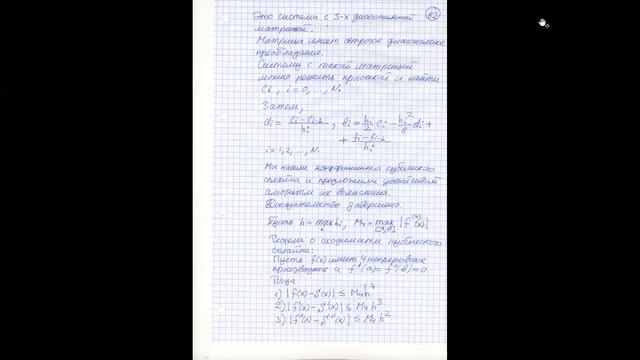 Это система с 3-х диагональной
матрицей.
Матрица имеет строгое диагональное
преобладание.
Систему с такой матрицей
можно решить прогонкой и найти
Ci, i=0,...,N.
Затем,
di = (Ci-Ci-1)/hi, bi = hi/2 Ci - hi²/6 di +
+ (fi-fi-1)/hi
i=1,2,...,N.
Мы нашли коэффициенты кубического
сплайна и предложили устойчивый
алгоритм их вычисления.
Доказательство завершено.
Пусть h=max hi, M4=max |f⁽⁴⁾(x)|
[a,b]
Теорема о сходимости кубического
сплайна:
Пусть f(x) имеет 4 непрерывные
производные и f''(a)=f''(b)=0
Тогда
1) |f(x)-S(x)| ≤ M4h⁴
2) |f'(x)-S'(x)| ≤ M4h³
3) |f''(x)-S''(x)| ≤ M4h²